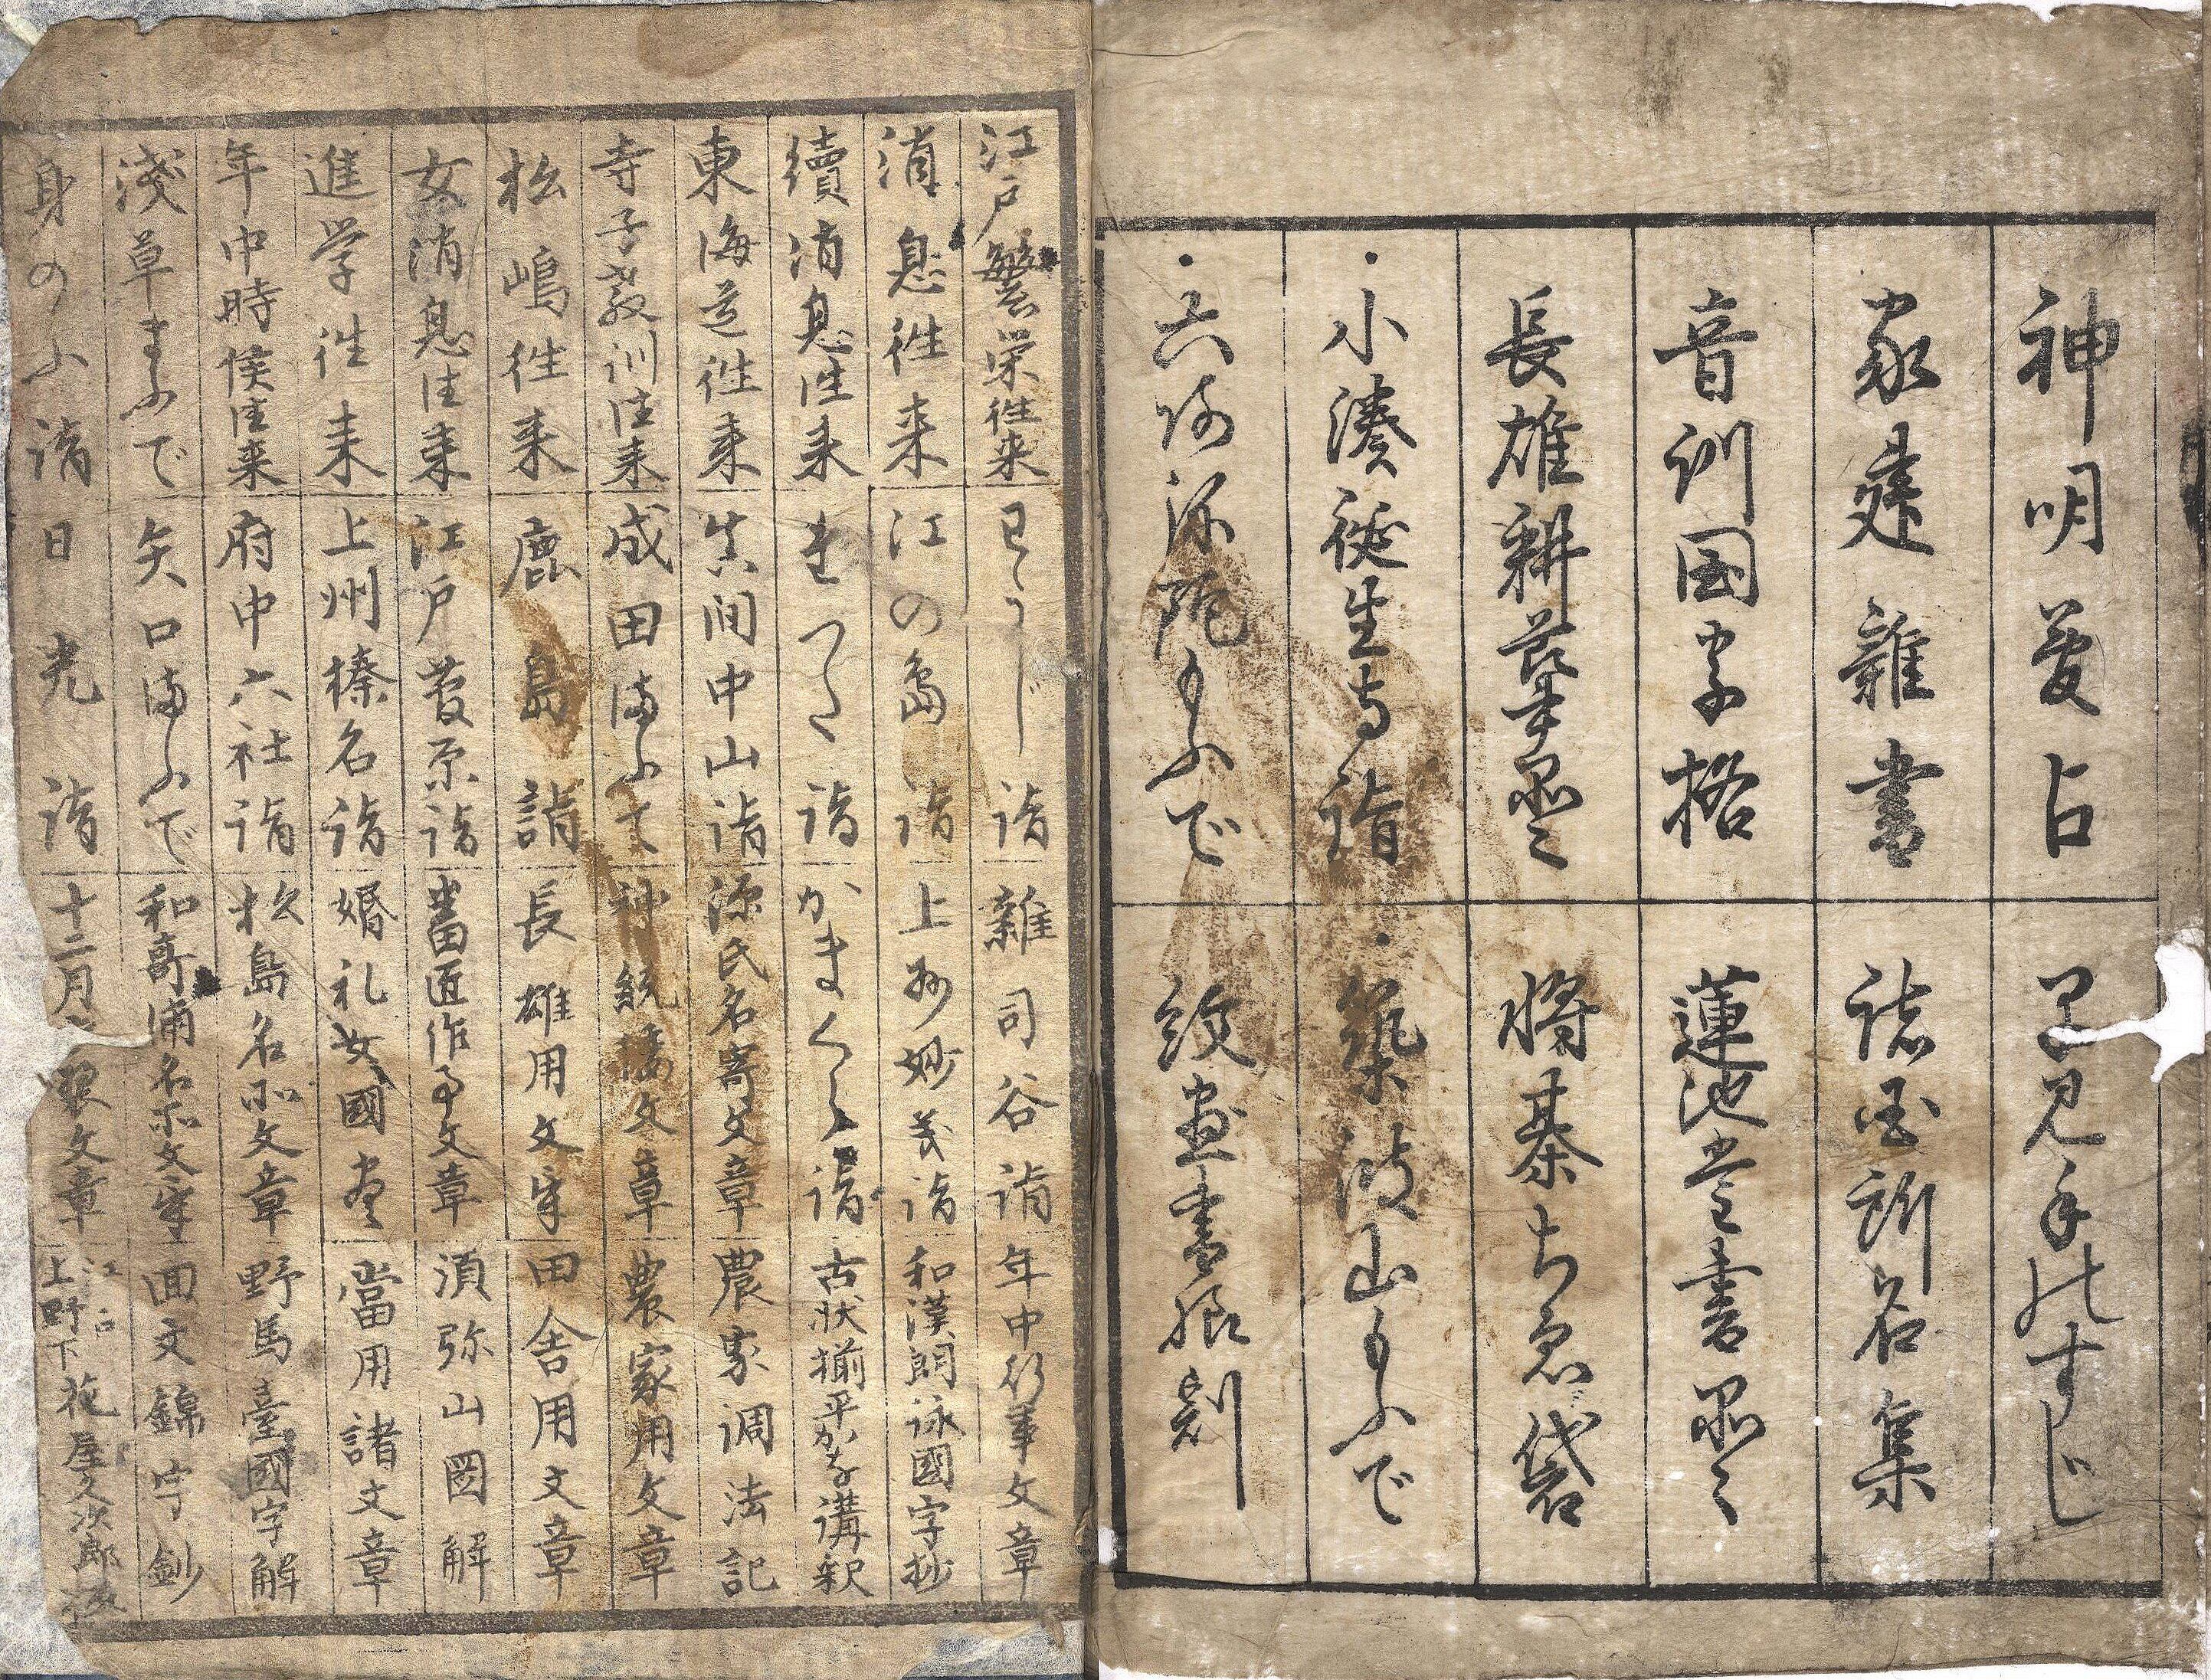 神明夢占
呂見手のすじ
家建雜書
諸国所名集
音訓国字格
蓮池堂書
長雄耕
将棊ち恵袋
・小湊誕生寺詣
・築波山もふで
・六阿弥陀もふで
紋畫書
江戸繁栄往来
詣
雜司谷詣
年中行事文章
消息往来
江の島詣
上州妙義詣
和漢朗詠國字抄
續消息往来
詣
かまくら詣
古状揃平かな講釈
東海道往来
真間中山詣
源氏名寄文章
農家調法記
寺子教訓往来
成田まふで
神統文章
農家用文章
松嶋往来
鹿島詣
長雄用文章
田舎用文章
女消息往来
江戸萱原詣
番匠作事文章
須弥山図解
進学往来
上州榛名詣
婚礼女國尽
當用諸文章
年中時候往来
府中六社詣
松島名所文章
野馬臺國字解
淺草まふで
矢口まふで
和哥浦名所文章
回文錦字鈔
身の詣
日光詣
十二月文章
江戸
上野下 花屋久次郎板